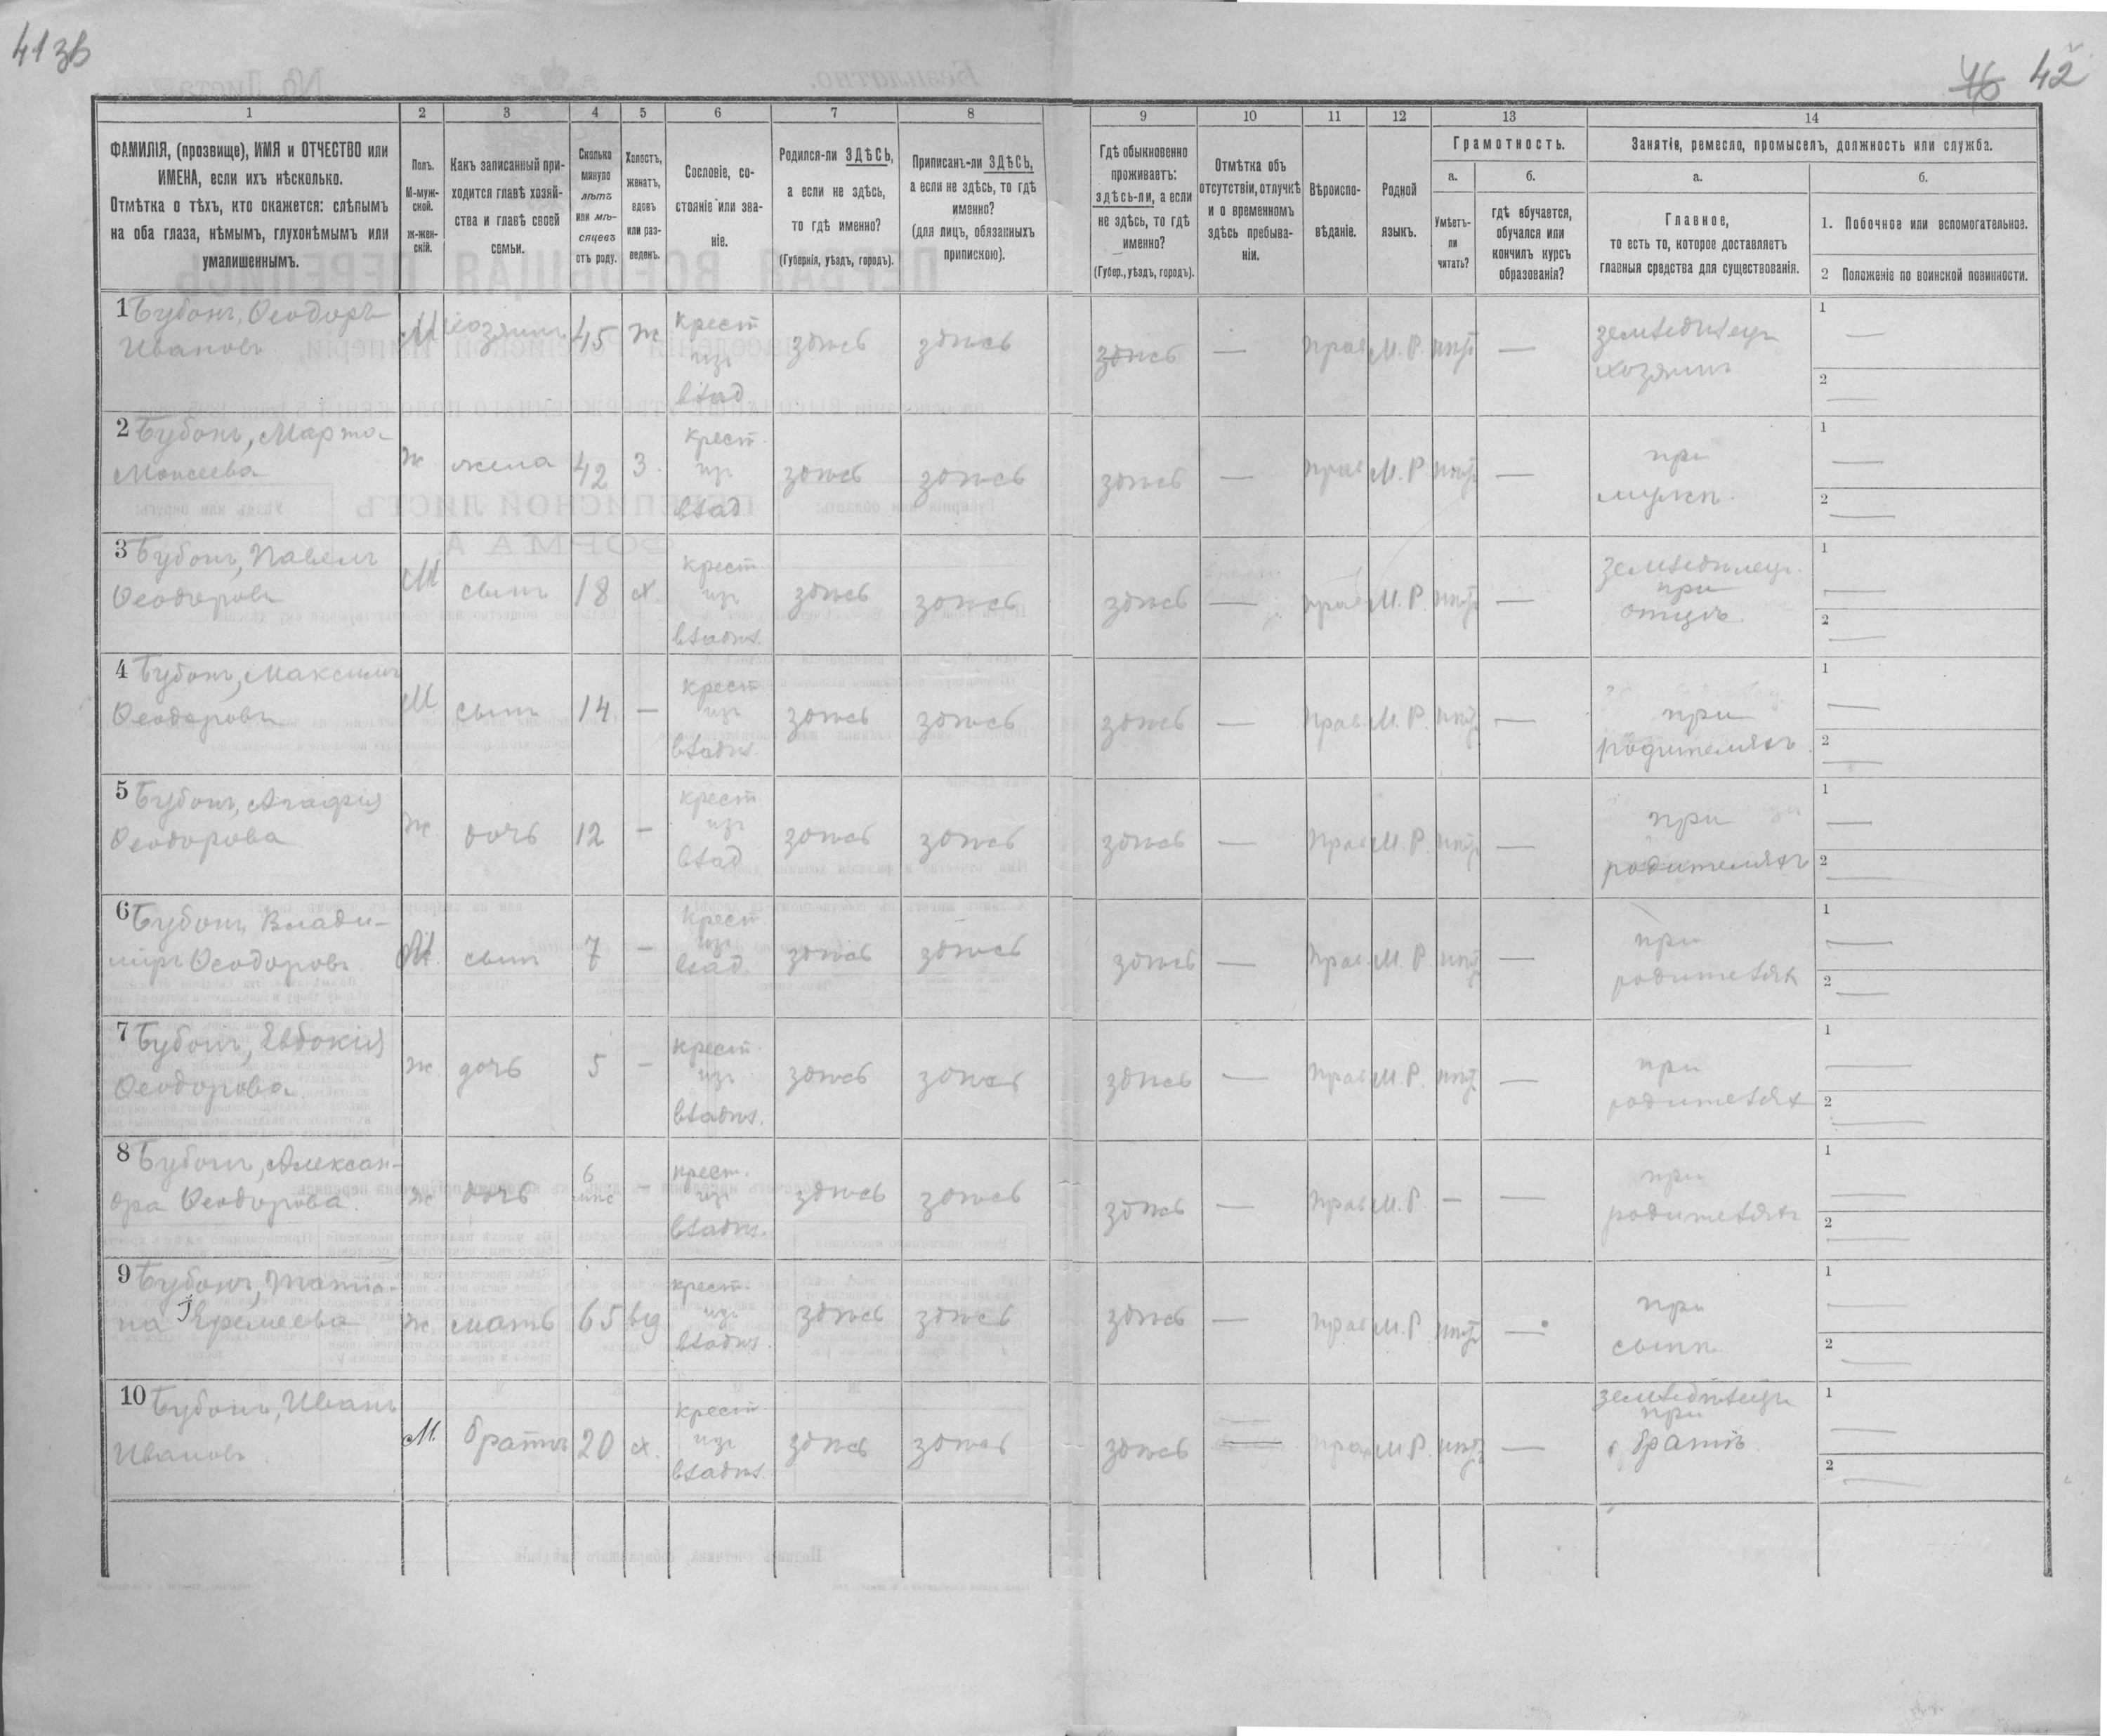 41 зв
46 42
1 2 3 4 5 6 7 8 9 10 11 12 13 14
ФАМИЛІЯ, (прозвище), ИМЯ и ОТЧЕСТВО или
ИМЕНА, если ихъ нѣсколько.
Отмѣтка о тѣхъ, кто окажется: слѣпымъ
на оба глаза, нѣмымъ, глухонѣмымъ или
умалишеннымъ.
Полъ.
М-муж-
ской.
Ж-жен-
скій.
Какъ записанный при-
ходится главѣ хозяй-
ства и главѣ своей
семьи.
Сколько
минуло
лѣтъ
или мѣ-
сяцевъ
отъ роду.
Холостъ,
женатъ,
вдовъ
или раз-
веденъ.
Сословіе, со-
стояніе или зва-
ніе.
Родился-ли ЗДѢСЬ,
а если не здѣсь,
то гдѣ именно?
(Губернія, уѣздъ, городъ).
Приписанъ-ли ЗДѢСЬ,
а если не здѣсь, то гдѣ
именно?
(для лицъ, обязанныхъ
припискою).
Гдѣ обыкновенно
проживаетъ:
здѣсь-ли, а если
не здѣсь, то гдѣ
именно?
(Губер., уѣздъ, городъ).
Отмѣтка объ
отсутствіи, отлучкѣ
и о временномъ
здѣсь пребыва-
ніи.
Вѣроиспо-
вѣданіе.
Родной
языкъ.
Грамотность.
а.
Умѣетъ-
ли
читать?
б.
гдѣ обучается,
обучался или
кончилъ курсъ
образованія?
Занятіе, ремесло, промыселъ, должность или служба.
а.
Главное,
то есть то, которое доставляетъ
главныя средства для существованія.
б.
1. Побочное или вспомогательное.
2 Положеніе по воинской повинности.
1 Бубонъ, Ѳеодоръ
Ивановъ
М хозяинъ 45 ж крест. изъ влад здѣсь здѣсь здѣсь — прав М. Р. нѣтъ — земледѣлецъ хозяинъ 1 — 2 —
2 Бубонъ, Марта
Моисеева
ж жена 42 з. крест. изъ влад здѣсь здѣсь здѣсь — прав М. Р нѣтъ — при мужѣ. 1 — 2 —
3 Бубонъ, Павелъ
Ѳеодоровъ
М сынъ 18 х. крест. изъ владѣл. здѣсь здѣсь здѣсь — прав М. Р. нѣтъ — земледѣлецъ. при отцѣ. 1 — 2 —
4 Бубонъ, Максимъ
Ѳеодоровъ
М сынъ 14 — крест. изъ владѣл. здѣсь здѣсь здѣсь — прав. М. Р. нѣтъ — при родителяхъ. 1 — 2 —
5 Бубонъ, Агафія
Ѳеодорова
ж. дочь 12 — крест. изъ влад здѣсь здѣсь здѣсь — прав М. Р. нѣтъ — при родителяхъ 1 — 2 —
6 Бубонъ, Влади-
миръ Ѳеодоровъ
М. сынъ 7 — крест. изъ влад. здѣсь здѣсь здѣсь — прав. М. Р. нѣтъ — при родителях 1 — 2 —
7 Бубонъ, Евдокія
Ѳеодорова.
ж дочь 5 — крест. изъ владѣл. здѣсь здѣсь здѣсь — прав М. Р. нѣтъ — при родителях 1 — 2 —
8 Бубонъ, Алексан-
дра Ѳеодорова.
ж дочь 6 мѣс — крест. изъ владѣл. здѣсь здѣсь здѣсь — прав М. Р — — при родителяхъ 1 — 2 —
9 Бубонъ, Татія-
на Еремеева
ж. мать 65 вд крест. изъ владѣл. здѣсь здѣсь здѣсь — прав М. Р. нѣтъ — при сынѣ 1 — 2 —
10 Бубонъ, Иванъ
Ивановъ.
М. братъ 20 х. крест. изъ владѣл. здѣсь здѣсь здѣсь — прав М. Р. нѣтъ — земледѣлецъ при братѣ. 1 — 2 —